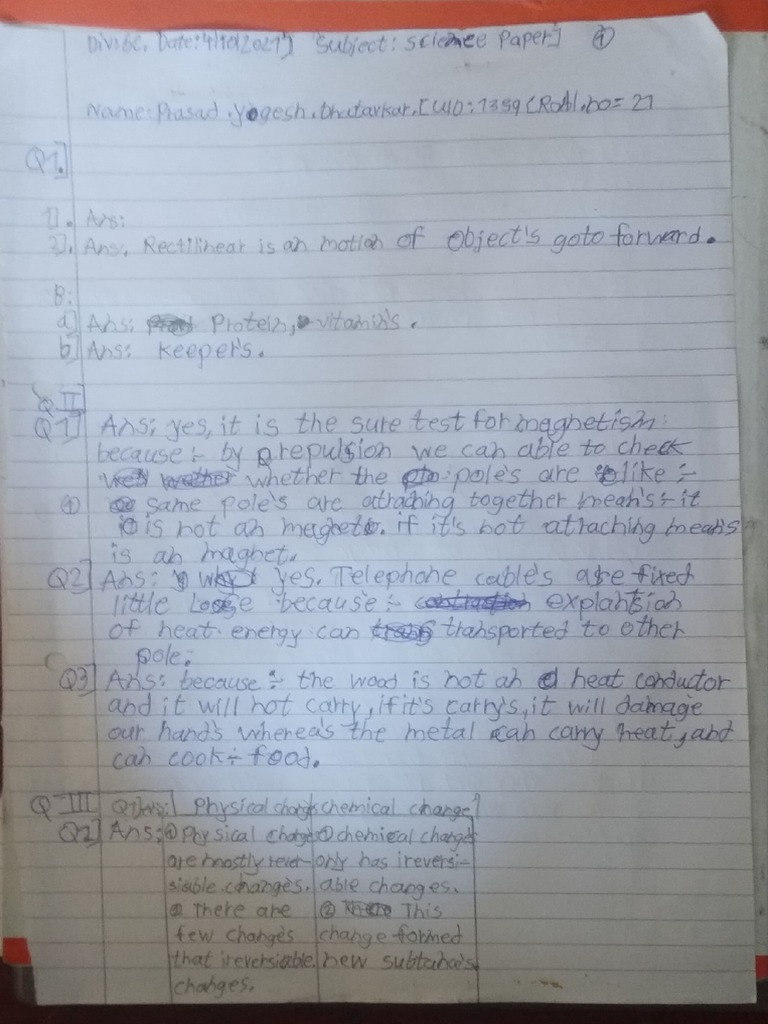 Div: 6c. Date: 4/10/2021] Subject: Science Paper] ①
Name: Prasad. yogesh. bhatavkar. [UID: 1359 (Roll. no = 27
Q1.]
1]. Ans:
2]. Ans. Rectilinear is an motion of object's goto forward.
B:
a] Ans: Protein, vitamin's.
b] Ans: keeper's.
Q II]
Q1] Ans: yes, it is the sure test for magnetism:
because :- by repulsion we can able to check
whether the pole's are like :-
① same pole's are attraching together mean's :- it
is not an magnet. if it's not attraching mean's
is an magnet.
Q2] Ans: yes. Telephone cable's are fixed
little loose because :- explantsion
of heat. energy can transported to other
pole.
Q3] Ans: because :- the wood is not an heat conductor
and it will not carry, if it's carry's, it will damage
our hand's wherea's the metal can carry heat, and
can cook :- food.
Q III] Q1] Ans: Physical change chemical change
Q2] Ans: ① Physical change ① chemical change
are mostly rever- only has ireversi-
siable changes. able changes.
② There are ② This
few changes change formed
that ireversiable. new subtance's
changes.